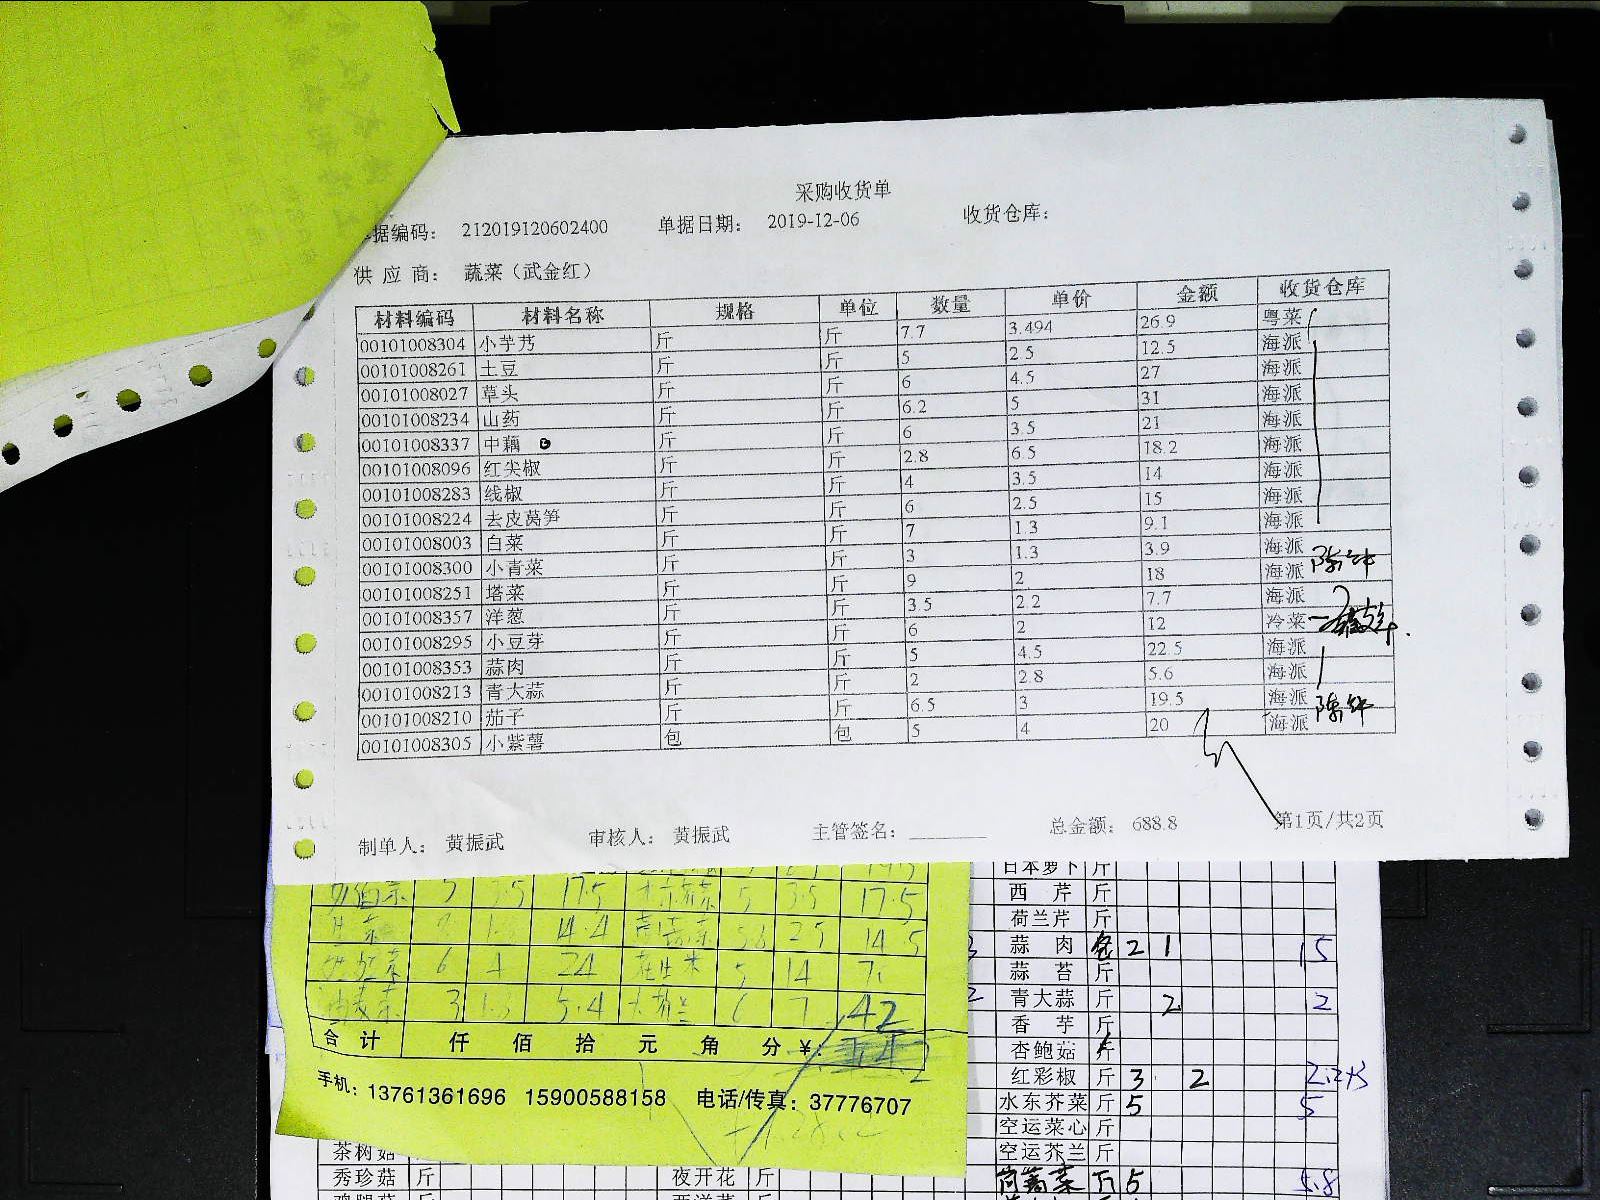 采购收货单
据编码： 212019120602400 单据日期： 2019-12-06 收货仓库：
供 应 商： 蔬菜（武金红）
材料编码 材料名称 规格 单位 数量 单价 金额 收货仓库
00101008304 小芋艿 斤 斤 7.7 3.494 26.9 粤菜
00101008261 土豆 斤 斤 5 2.5 12.5 海派
00101008027 草头 斤 斤 6 4.5 27 海派
00101008234 山药 斤 斤 6.2 5 31 海派
00101008337 中藕 斤 斤 6 3.5 21 海派
00101008096 红尖椒 斤 斤 2.8 6.5 18.2 海派
00101008283 线椒 斤 斤 4 3.5 14 海派
00101008224 去皮莴笋 斤 斤 6 2.5 15 海派
00101008003 白菜 斤 斤 7 1.3 9.1 海派
00101008300 小青菜 斤 斤 3 1.3 3.9 海派
00101008251 塔菜 斤 斤 9 2 18 海派
00101008357 洋葱 斤 斤 3.5 2.2 7.7 海派
00101008295 小豆芽 斤 斤 6 2 12 冷菜
00101008353 蒜肉 斤 斤 5 4.5 22.5 海派
00101008213 青大蒜 斤 斤 2 2.8 5.6 海派
00101008210 茄子 斤 斤 6.5 3 19.5 海派
00101008305 小紫薯 包 包 5 4 20 海派
制单人： 黄振武 审核人： 黄振武 主管签名： 总金额： 688.8 第1页/共2页
17.5 5 3.5 17.5
14.4 14.5
6 4 24 5 14
3 5.4 6 7 42
合 计 仟 佰 拾 元 角 分 ¥:
手机：13761361696 15900588158 电话/传真：37776707
茶树菇
秀珍菇 斤 夜开花 斤
日本萝卜 斤
西 芹 斤
荷兰芹 斤
蒜 肉 2 1 15
蒜 苔 斤
青大蒜 斤 2 2
香 芋 斤
杏鲍菇 斤
红彩椒 斤 3 2
水东芥菜 斤 5 5
空运菜心 斤
空运芥兰 斤
茼蒿菜 斤 5 5.8